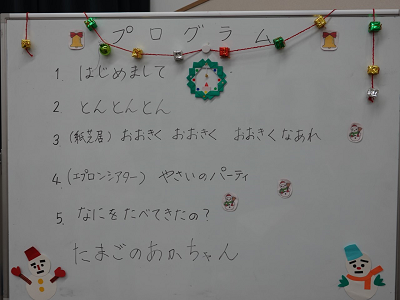 プログラム
1. はじめまして
2 とんとんとん
3 (紙芝居) おおきく おおきく おおきくなあれ
4 (エプロンシアター) やさいのパーティ
5. なにをたべてきたの?
たまごのあかちゃん